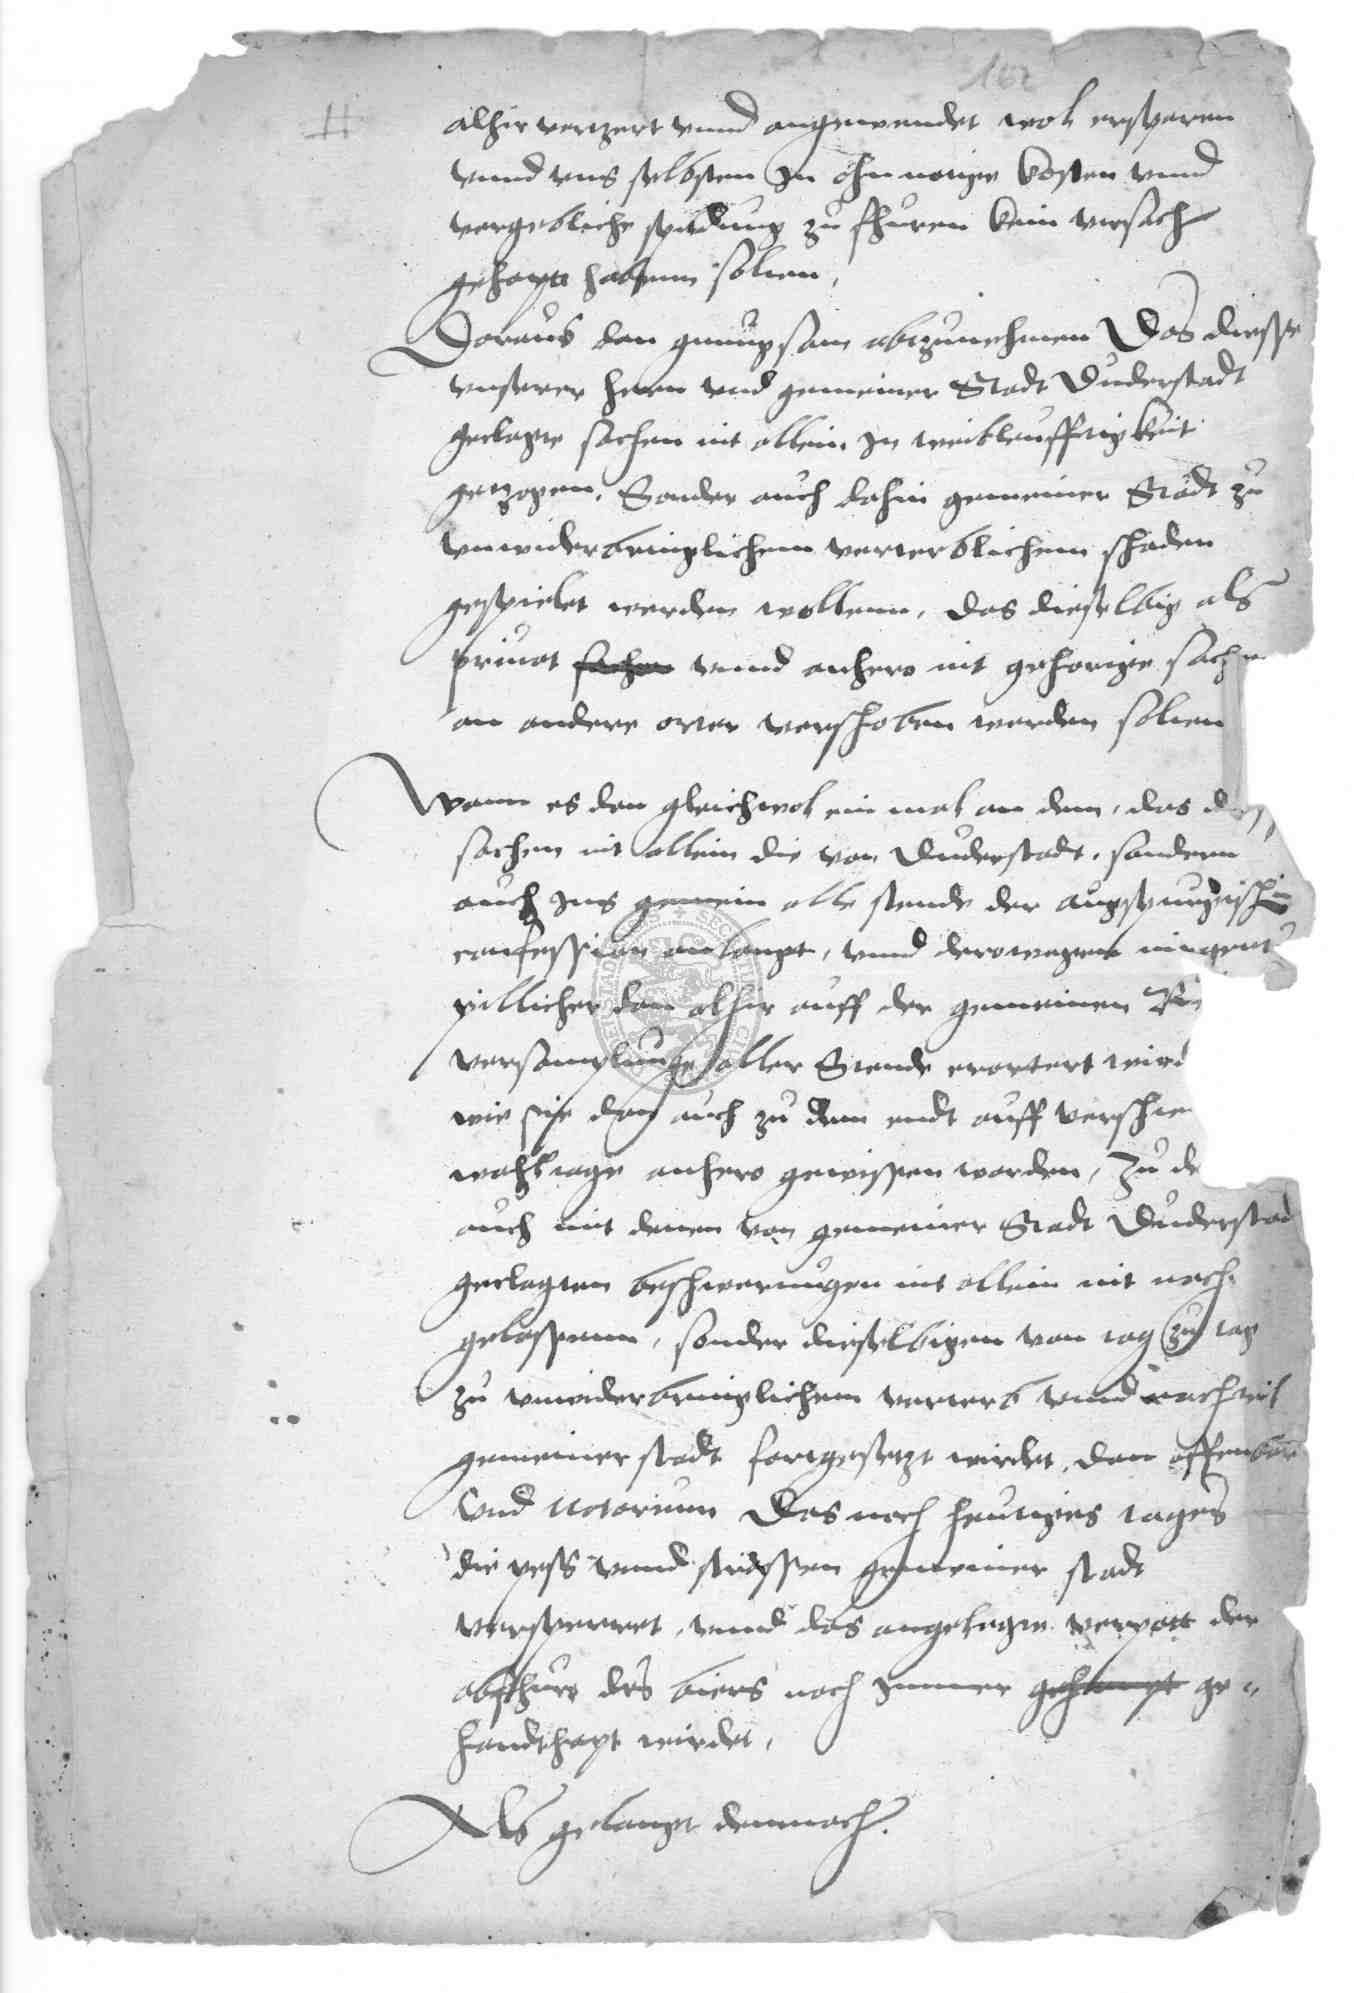 162
H
alhir vertzert vnnd angewendet wol ersparen
vnnd vns selbsten In ohn notige kosten vnnd
vergebliche spildung zu fhuren kein vrsach
gehapt habenn solten,
Doraus dan gnugsam abtzunehmen Das diesse
vnserer hern vnd gemeiner Stadt Duderstadt
geclagte sachen nit allein In weitleufftigkeit
getzogen, Sonder auch dahin gemeiner Stadt zu
vnwiderbringlichem verterblichem schaden
gespielet werden wollenn, das dieselbig als
priuat sachen vnnd anhero nit gehorige sachen
an andere orter verschoben werden solten
Wann es den gleichwol ein mal an dem, das d
sachen nit allein die von Duderstadt, sondern
auch Ins gemein alle stende der augspurgischen
confession anlangt, vnnd derowegen nirgent
pillicher dan alhir auff der gemeinen
versamplunge aller Stende erortert wird
wie sie dan auch zu dem endt auff verschie
wahltage anhero gewissen worden, Zu de
auch mit denen von gemeiner Stadt Duderstad
geclagten beschwerungen nit allein nit nach
gelassenn, sonder dieselbigen von tag zu tag
zu vnwiderbringlichem verterb vnnd nachteil
gemeiner stadt fortgesetzt wirdet, dan offenbar
Vnd Notorium Das noch heutiges tages
die pess vnnd strassen gemeiner stadt
versperret, vnnd das angelegte verpott der
abfhure des biers noch Immer gehampt ge-
handthapt wirdet,
Als gelangt demnach